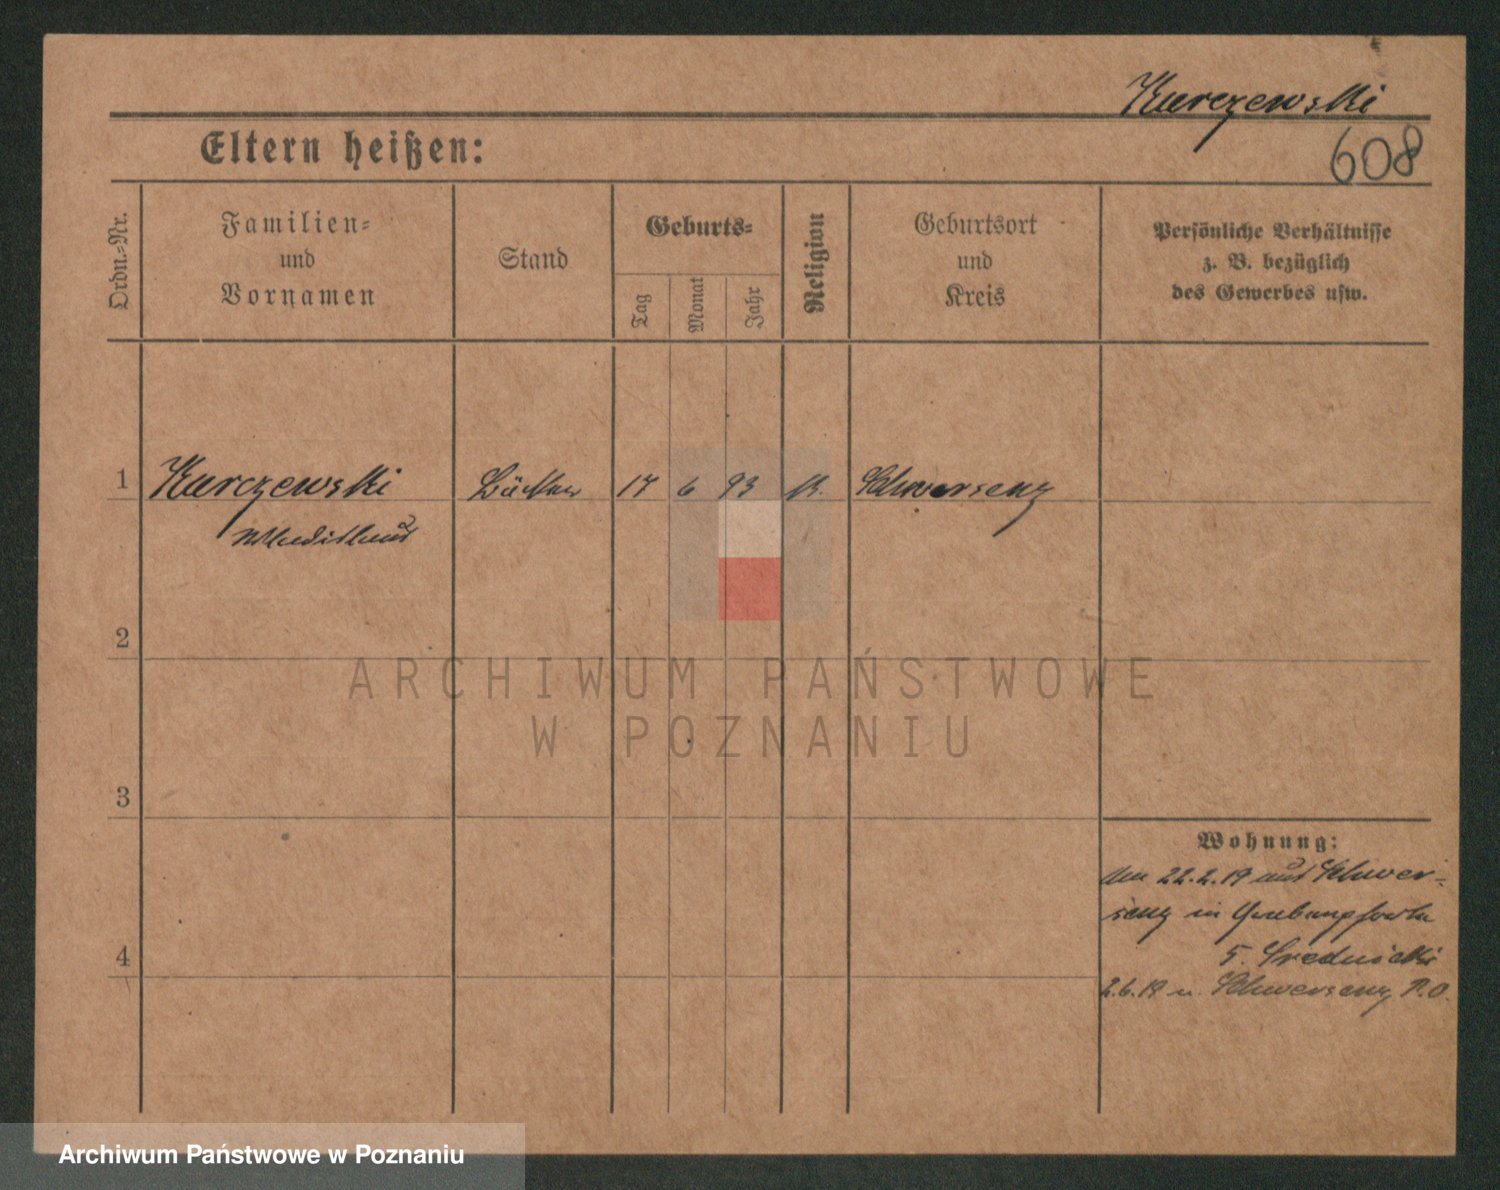 Kurczewski
608
Eltern heißen:
Ordn.-Nr.
Familien-
und
Vornamen
Stand
Geburts-
Tag
Monat
Jahr
Religion
Geburtsort
und
Kreis
Persönliche Verhältnisse
z. B. bezüglich
des Gewerbes usw.
1 Kurczewski Bäcker 17 6 93 Schwersenz
2
3
4
Wohnung:
22.2.19 aus Schwer-
senz in
5.
2.6.19 n. Schwersenz P.O.
ARCHIWUM PAŃSTWOWE
W POZNANIU
Archiwum Państwowe w Poznaniu